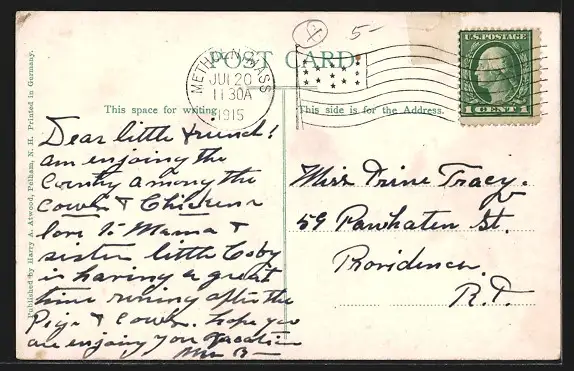 5-
POST CARD.
METHUEN MASS
JUL 20
11 30A
1915
U.S. POSTAGE
1 CENT 1
This space for writing.
This side is for the Address.
Published by Harry A. Atwood, Pelham, N. H. Printed in Germany.
Dear little friend!
am enjoing the
Contry among the
Cows & Chickens
love to Mama &
sister little Coby
is having a great
time runing after the
Pigs & Cows. hope you
are enjoing you Vacation
Mrs B—
Miss Irine Tracy.
59 Pawhaten St.
Providence.
R.I.